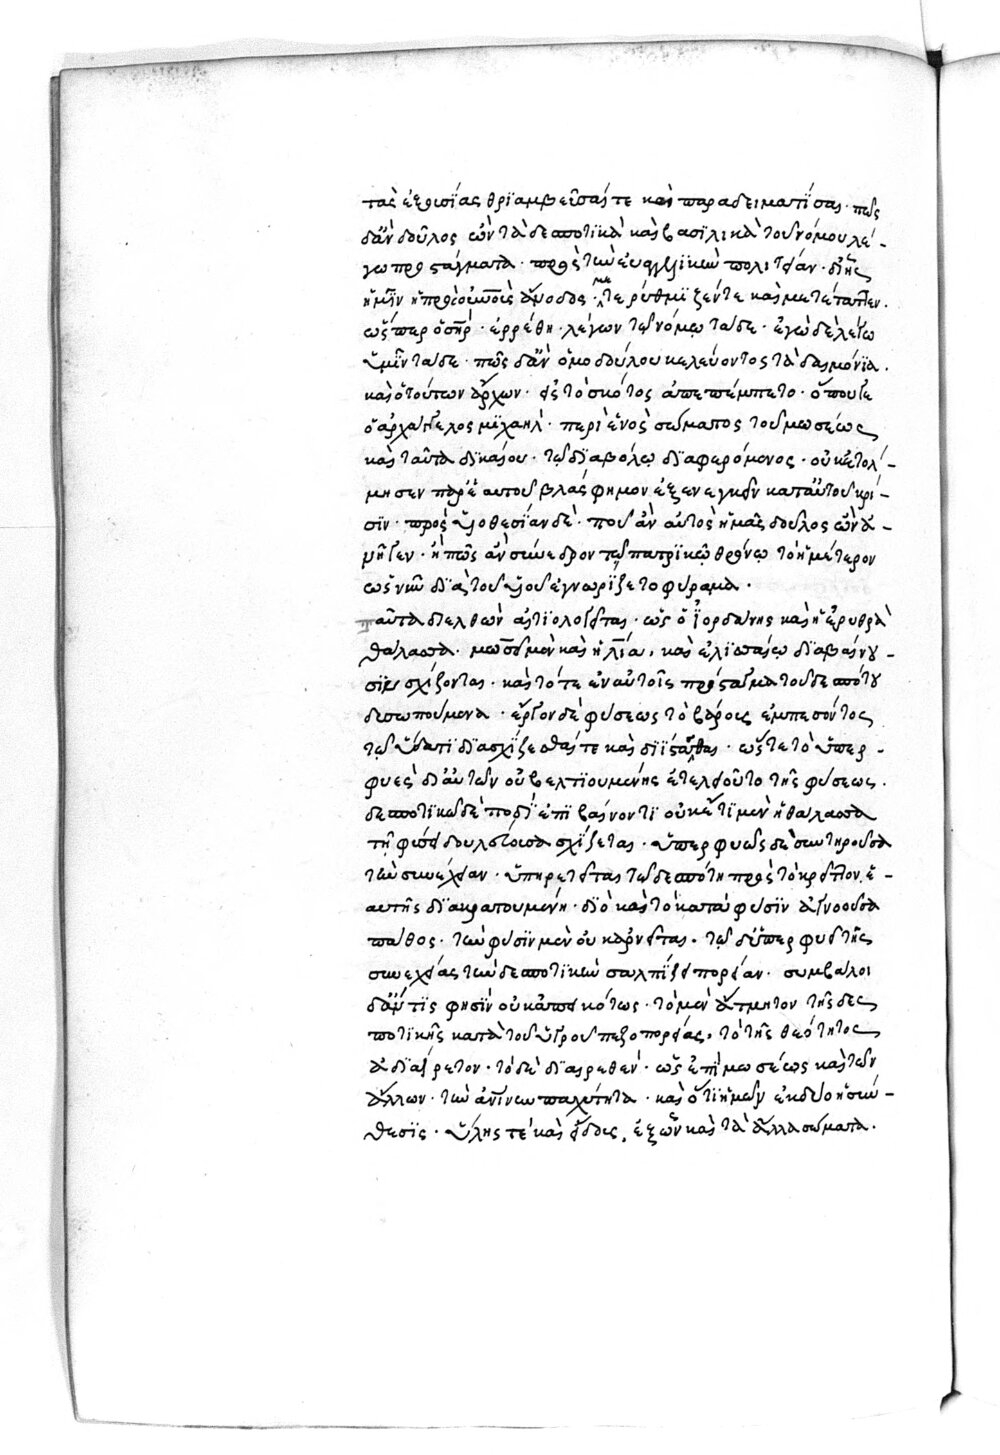 τὰς ἐξουσίας θριαμβεῦσαί τε καὶ παραδειματίσας· πῶς
δἂν δοῦλος ὢν τὰ δεσποτικὰ καὶ βασιλικὰ τοῦ νόμου λέ-
γω προστάγματα· πρὸς τὴν εὐαγγελικὴν πολιτείαν·
ἡμῖν ἡ πρὸς οὐρανοὺς ἄνοδος· μετερύθμιζέν τε καὶ μετέταττεν.
ὥσπερ ὁ σηρ· ἐρρέθη· λέγων τῷ νόμω τάδε· ἐγὼ δὲ λέγω
ὑμῖν τάδε· πῶς δἂν ὁμοδούλου κελεύοντος τὰ δαιμόνια.
καὶ ὁ τούτων ἄρχων· εἰς τὸ σκότος ἀπεπέμπετο· ὅπου γε
ὁ ἀρχάγγελος μιχαὴλ· περὶ ἑνὸς σώματος τοῦ μωσέως
καὶ ταῦτα δικαίου· τῷ διαβόλῳ διαφερόμενος· οὐκ ἐτόλ-
μησεν παρ' ἑαυτοῦ βλάσφημον ἐξενεγκεῖν κατ' αὐτοῦ κρί-
σιν· πρὸς υἱοθεσίαν δὲ· ποῦ ἂν αὐτὸς ἡμᾶς δοῦλος ὢν ἀ-
νῆγεν· ἢ πῶς ἂν σύνεδρον τῷ πατρικῷ θρόνῳ τὸ ἡμέτερον
ὡς νῦν διὰ τοῦ υἱοῦ ἐγνωρίζετο φύραμα.
ταῦτα διελθὼν ἀντιολογεῖται· ὡς ὁ ἰορδάνης καὶ ἡ ἐρυθρὰ
θάλασσα· μωσεῖ μὲν καὶ ἠλία, καὶ ἐλισσαίῳ διαβαίνου-
σιν σχίζονται· καὶ τότε ἐν αὐτοῖς πρόσταγμα τοῦ δεσπότου
δεσωπούμενα· ἔργον δὲ φύσεως τὸ βάρους ἐμπεσόντος
τῷ ὕδατι διασχίζεσθαί τε καὶ διίστασθαι· ὥστε τὸ ὑπερ-
φυὲς δι' αὐτῶν οὐ βελτιουμένης ἐτελεῖτο τῆς φύσεως.
δεσποτικῷ δὲ ποδὶ ἐπιβαίνοντι οὐκέτι μὲν ἡ θάλασσα
τῇ φύσει δουλεύουσα σχίζεται· ὑπερφυῶς δὲ συντηροῦσα
τὴν συνέχειαν· ὑπηρετεῖται τῷ δεσπότη πρὸς τὸ κρεῖττον ἑ-
αυτῆς διακρατουμένη· διὸ καὶ τὸ κατὰ φύσιν ἀγνοοῦσα
πάθος· τὴν φύσιν μὲν οὐκ ἀρνεῖται. τῷ δ' ὑπερφυεῖ τῆς
συνεχείας τὴν δεσποτικὴν σαλπίζει πορείαν· συμβάλοι
δ' ἄν τις φησὶν οὐκ ἀπεικότως· τὸ μὲν ἄτμητον τῆς δεσ
ποτικῆς κατὰ τοῦ ὑγροῦ πεζοπορείας, τὸ τῆς θεότητος
ἀδιαίρετον· τὸ δὲ διαιρεθὲν· ὡς ἐπὶ μωσέως καὶ τῶν
ἄλλων· τὴν ἀνθρωπίνην παχύτητα· καὶ ὅτι ἡμῶν ἐκ δύο ἡ σύν-
θεσις· ὕλης τὲ καὶ εἴδους, ἐξ ὧν καὶ τὰ ἄλλα σώματα.